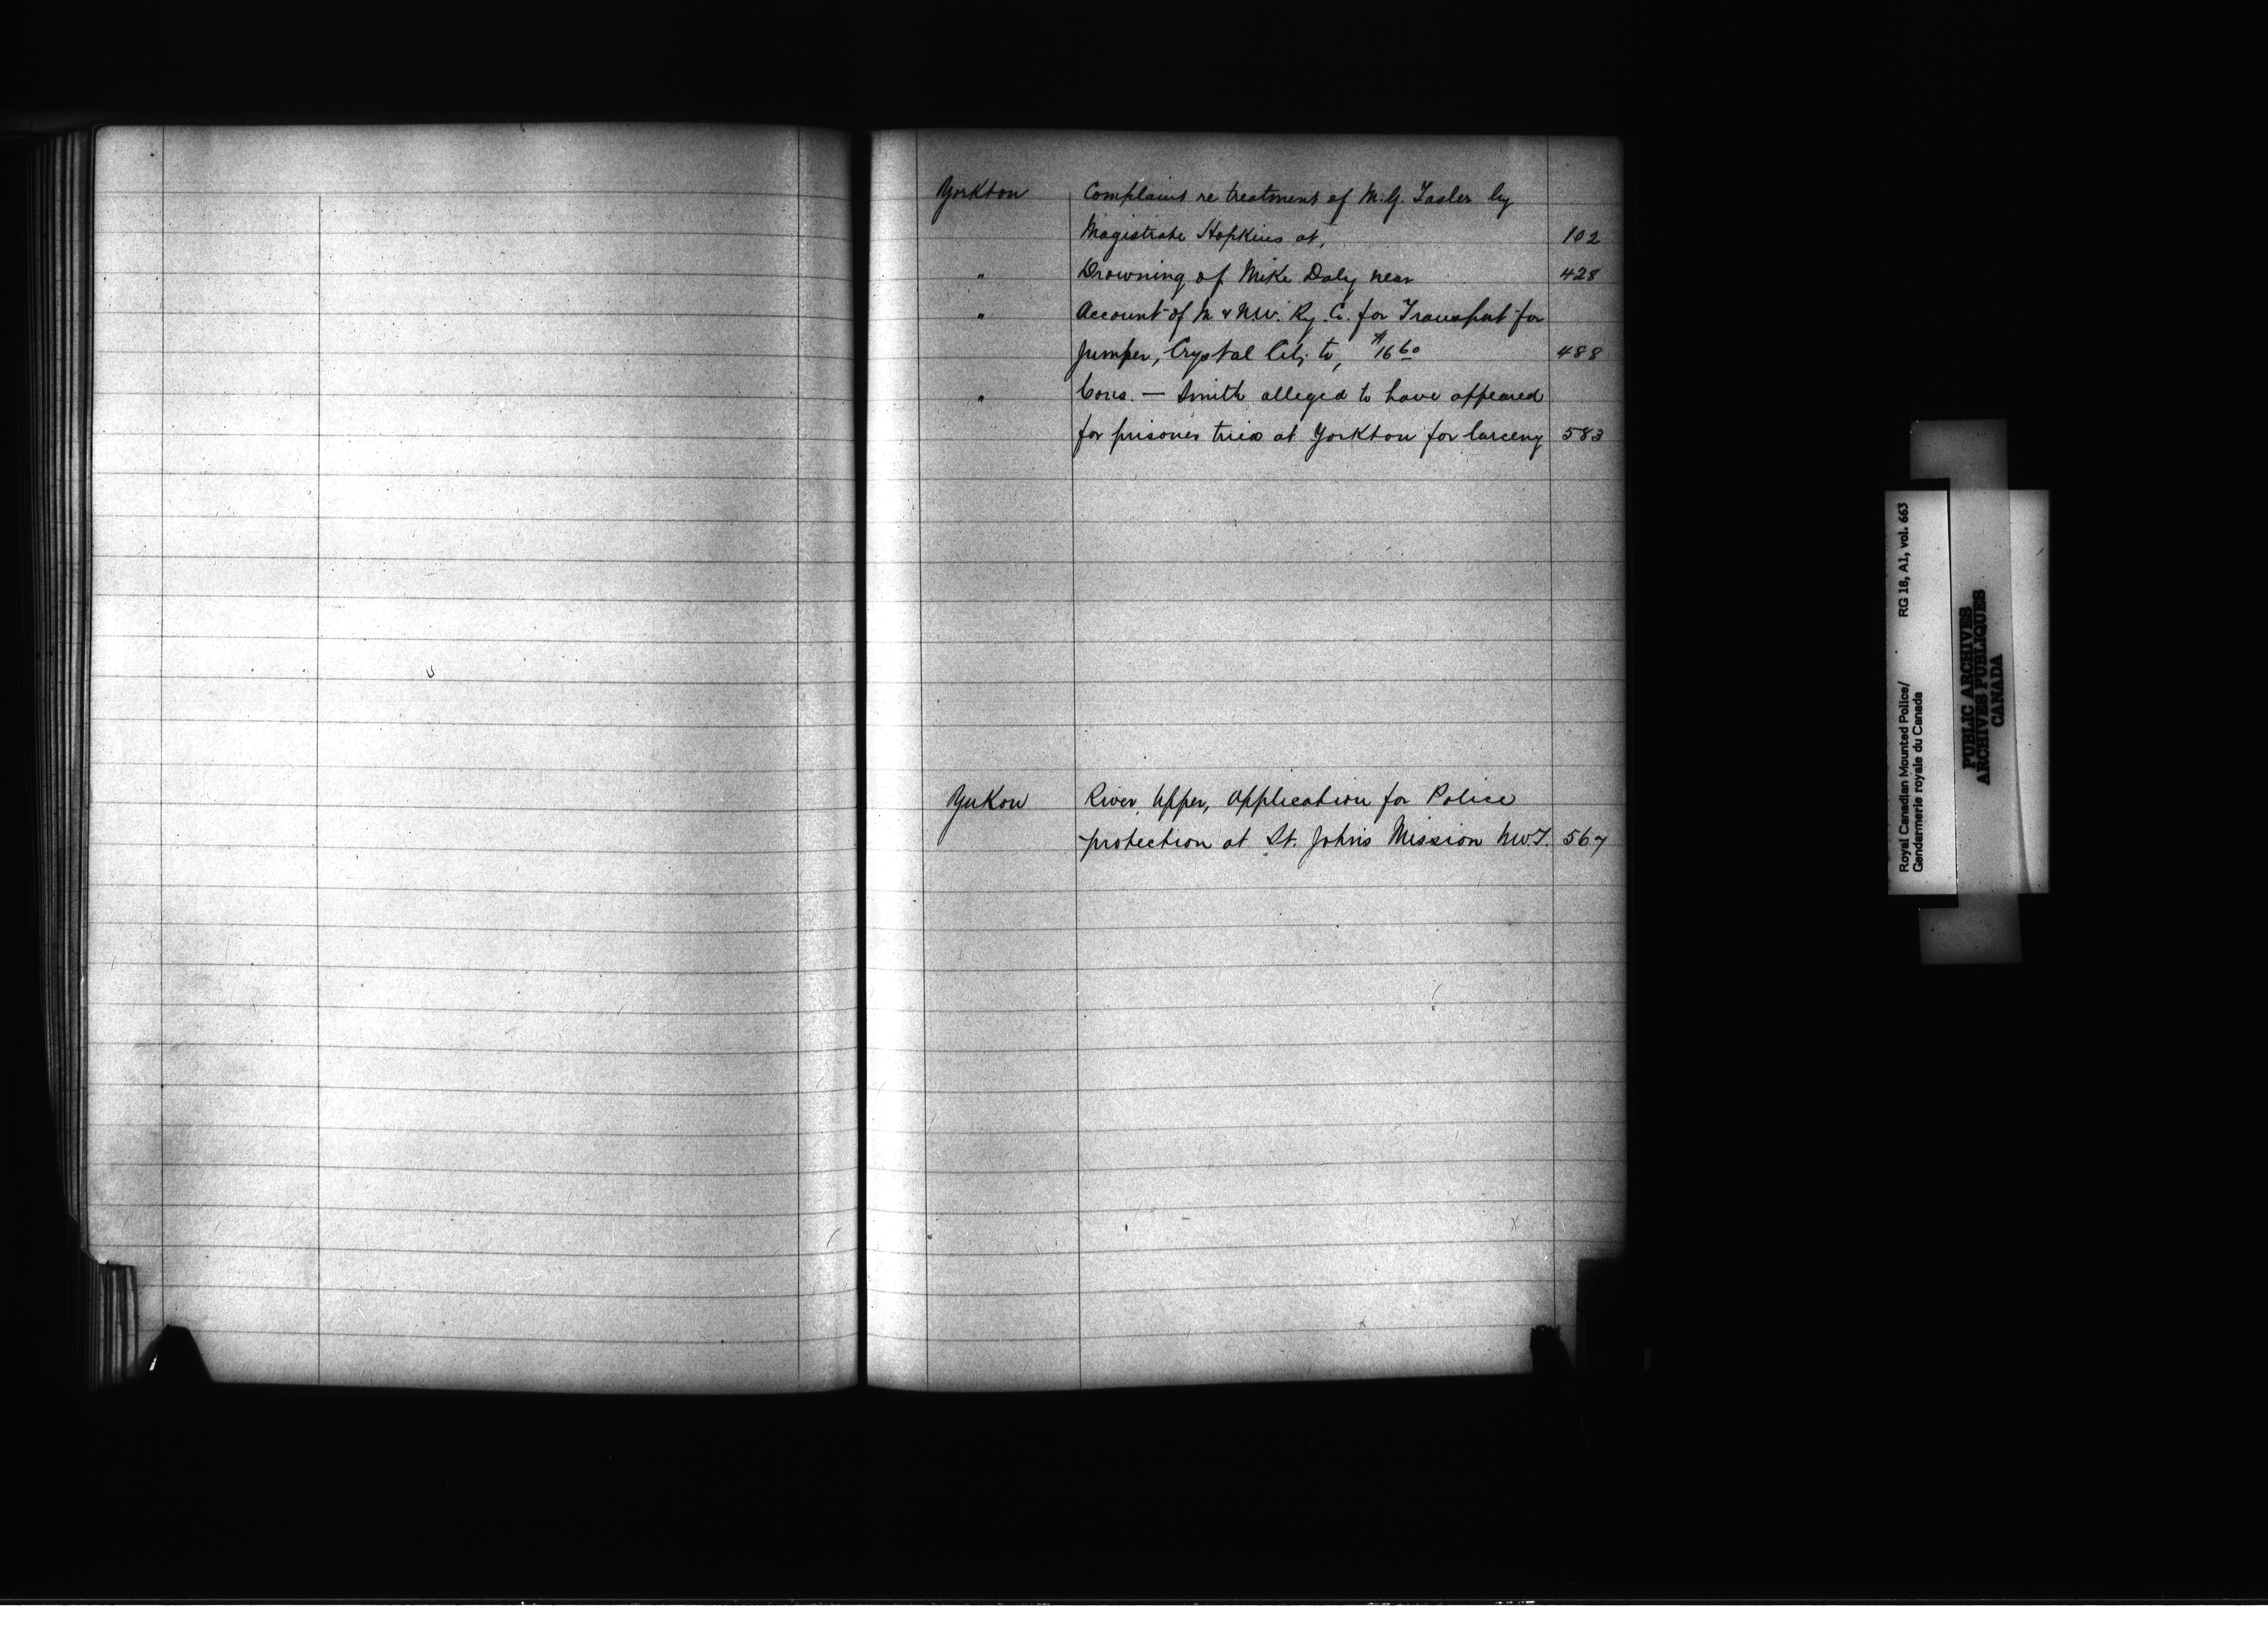 Yorkton Complaint re treatment of M.G. Tasler by
Magistrate Hopkins at, 102
" Drowning of Mike Daly near 428
" Account of M & N.W. Ry. Co. for Transport for
Jumper, Crystal City to, $16 60 488
" Cons. — Smith alleged to have appeared
for prisoner tried at Yorkton for larceny 583
Yukon River, Upper, Application for Police
protection at St. Johns Mission N.W.T. 567
Royal Canadian Mounted Police/ RG 18, A1, vol. 663
Gendarmerie royale du Canada
PUBLIC ARCHIVES
ARCHIVES PUBLIQUES
CANADA